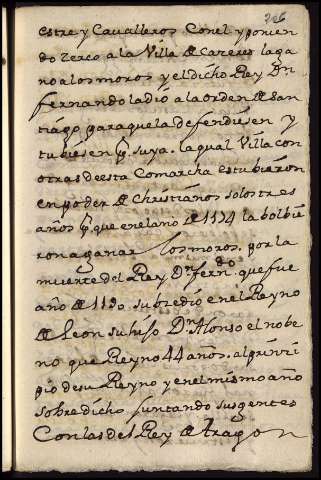 206
estre y Cavalleros Con el y ponien
do zerco a la Villa de Cazeres la ga
no a los moros y el dicho Rey Dn
fernando la dió a la orden de san
tiago para que la defendiesen y
tubiesen p.r suya. la qual Villa con
otras de esta Comarcha estubieron
en poder de Christianos solos tres
años p.r que en el año de 1174 la bolbie
ron a ganar los moros. por la
muerte del Rey D.n fern.do que fue
año de 1190. subzedio en el Reyno
de Leon su hijo D.n Alonso el nobe
no que Reyno 44 años. al prinzi
pio de su Reyno y en el mismo año
sobredicho juntando sus gentes
Con las del Rey de Aragon